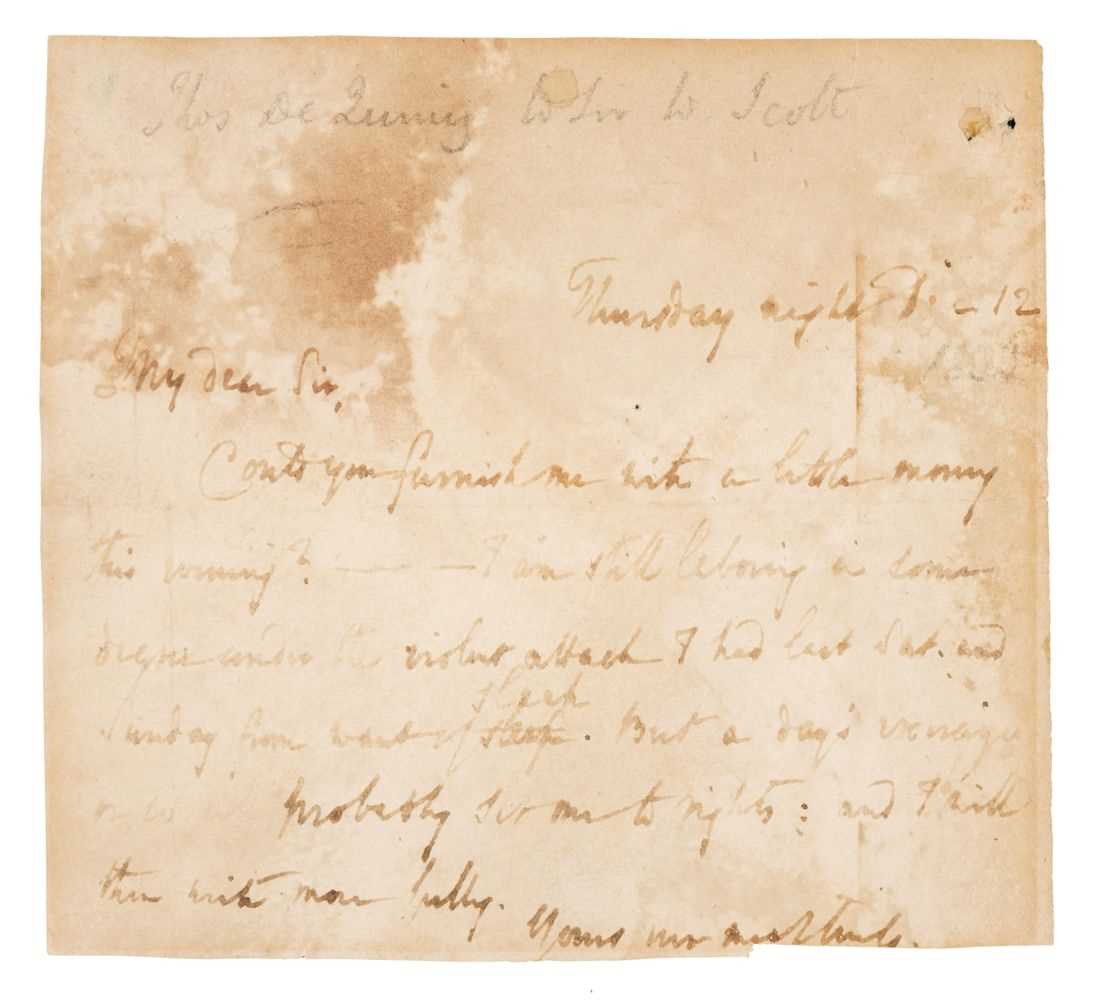 Thos De Quincy to Sir W. Scott
Thursday night D: – 12
My dear Sir,
Could you furnish me with a little money
this evening? — — I am still laboring in some
degree under the violent attack I had last Sat. and
sleep
Sunday from want of sleep. But a day's
more will probably set me to rights: and I will
then write more fully.
Yours ever most truly.